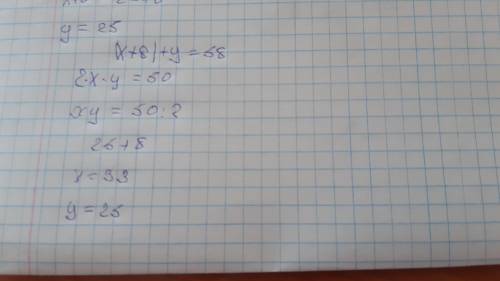 y = 25
(x+8)+y=58
2·x·y = 50
xy = 50:2
25+8
x=33
y=25